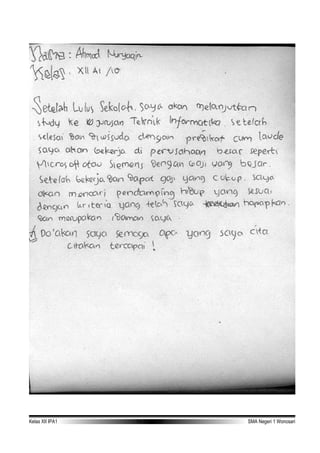 Nama : Ahmad Nuryaqin
Kelas : XII A1 / 10
Setelah Lulus Sekolah, Saya akan melanjutkan
study ke jurusan Teknik Informatika setelah
selesai dan diwisuda dengan predikat cum laude
saya akan bekerja di perusahaan besar seperti
Microsoft atau Siemens dengan Gaji yang besar.
Setelah bekerja dan dapat gaji yang cukup, saya
akan mencari pendamping hidup yang sesuai
dengan kriteria yang telah saya harapkan.
dan merupakan idaman saya.
Do'akan saya semoga apa yang saya cita
citakan tercapai !
Kelas XII IPA1
SMA Negeri 1 Wonosari